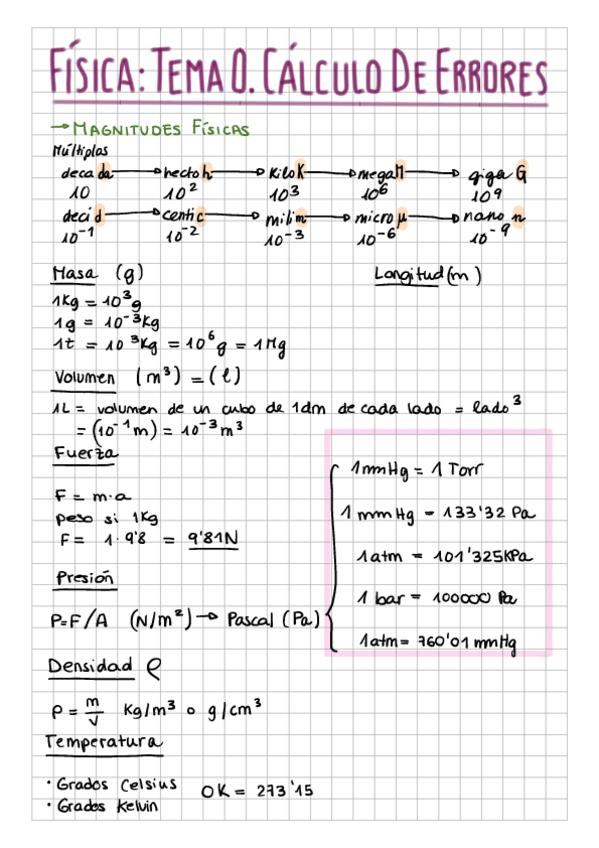 FÍSICA: TEMA 0. CÁLCULO DE ERRORES
→ MAGNITUDES FÍSICAS
Múltiplos
deca da → hecto h → Kilo K → mega M → giga G
10 10² 10³ 10⁶ 10⁹
deci d → centi c → mili m → micro μ → nano n
10⁻¹ 10⁻² 10⁻³ 10⁻⁶ 10⁻⁹
Masa (g) Longitud (m)
1Kg = 10³g
1g = 10⁻³Kg
1t = 10³Kg = 10⁶g = 1Mg
Volumen (m³) = (l)
1L = volumen de un cubo de 1dm de cada lado = lado³
= (10⁻¹m) = 10⁻³m³
Fuerza
F = m·a
peso si 1Kg
F = 1·9'8 = 9'81N
Presión
P=F/A (N/m²) → Pascal (Pa)
1mmHg = 1 Torr
1 mmHg = 133'32 Pa
1atm = 101'325KPa
1 bar = 100000 Pa
1atm = 760'01 mmHg
Densidad ρ
ρ = m/V Kg/m³ o g/cm³
Temperatura
· Grados Celsius 0K = 273'15
· Grados Kelvin